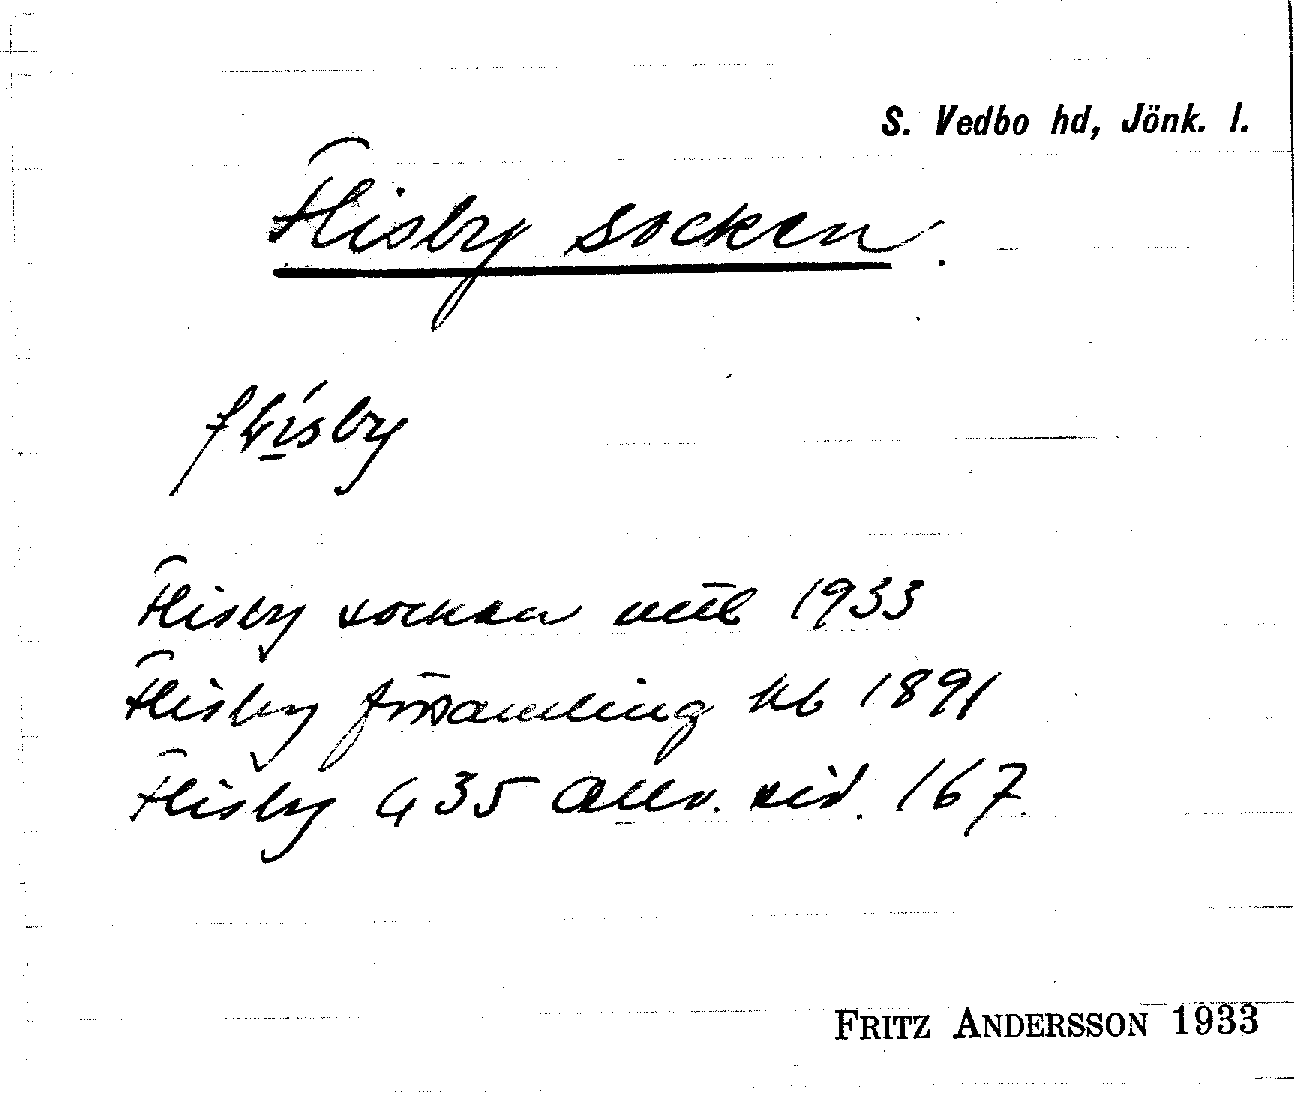 S. Vedbo hd, Jönk. l.
Flisby socken.
flisby
Flisby socken 1933
Flisby församling kb 1891
Flisby 435 sid. 167
FRITZ ANDERSSON 1933